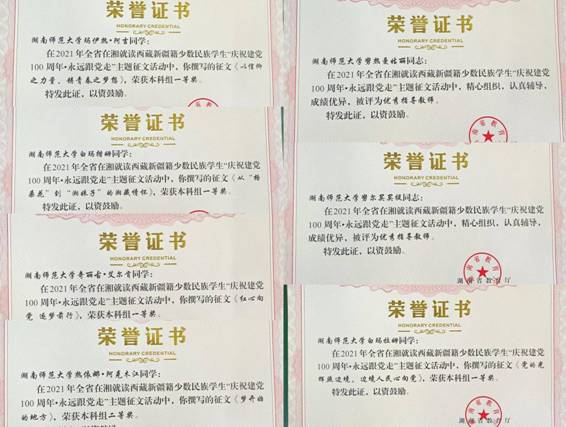 荣誉证书
HONORARY CREDENTIAL
湖南师范大学玛伊热·阿吉同学:
在2021年全省在湘就读西藏新疆籍少数民族学生“庆祝建党
100周年·永远跟党走”主题征文活动中,你撰写的征文《以信仰
之力量, 之梦想》,荣获本科组一等奖。
特发此证,以资鼓励。
荣誉证书
HONORARY CREDENTIAL
湖南师范大学白玛 同学:
在2021年全省在湘就读西藏新疆籍少数民族学生“庆祝建党
100周年·永远跟党走”主题征文活动中,你撰写的征文《从“格
桑花”到“湘妹子”的湘藏情怀》,荣获本科组一等奖。
特发此证,以资鼓励。
荣誉证书
HONORARY CREDENTIAL
湖南师范大学 丽 ·艾尔肯同学:
在2021年全省在湘就读西藏新疆籍少数民族学生“庆祝建党
100周年·永远跟党走”主题征文活动中,你撰写的征文《红心向
党 逐梦前行》,荣获本科组一等奖。
荣誉证书
HONORARY CREDENTIAL
湖南师范大学热依娜·阿克木江同学:
在2021年全省在湘就读西藏新疆籍少数民族学生“庆祝建党
100周年·永远跟党走”主题征文活动中,你撰写的征文《梦开始
的地方》,荣获本科组二等奖。
荣誉证书
HONORARY CREDENTIAL
湖南师范大学 同志:
在2021年全省在湘就读西藏新疆籍少数民族学生“庆祝建党
100周年·永远跟党走”主题征文活动中,精心组织,认真辅导,
成绩优异,被评为优秀指导教师。
特发此证,以资鼓励。
荣誉证书
HONORARY CREDENTIAL
湖南师范大学 同志:
在2021年全省在湘就读西藏新疆籍少数民族学生“庆祝建党
100周年·永远跟党走”主题征文活动中,精心组织,认真辅导,
成绩优异,被评为优秀指导教师。
特发此证,以资鼓励。
湖南省教育厅
荣誉证书
HONORARY CREDENTIAL
湖南师范大学白玛拉姆同学:
在2021年全省在湘就读西藏新疆籍少数民族学生“庆祝建党
100周年·永远跟党走”主题征文活动中,你撰写的征文《党的光
辉照边境,边境人民心向党》,荣获本科组一等奖。
特发此证,以资鼓励。